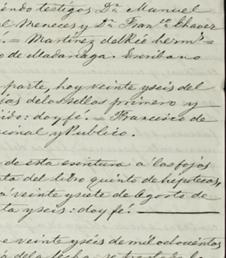 endo testigos Dn. Manuel
el Meneces y Dn. Franco. Chavez
= Martinez del Rio herms. =
co de Madariaga. Escribano
parte, hoy veinte y seis del
ias de los sellos primero y
ido: doy fé. = Francisco de
cional y Publico.
de esta escritura a las fojas
ta del libro quinto de hipotecas,
veinte y siete de Agosto de
ta y seis: doy fé.
e veinte y seis de mil ochocientos